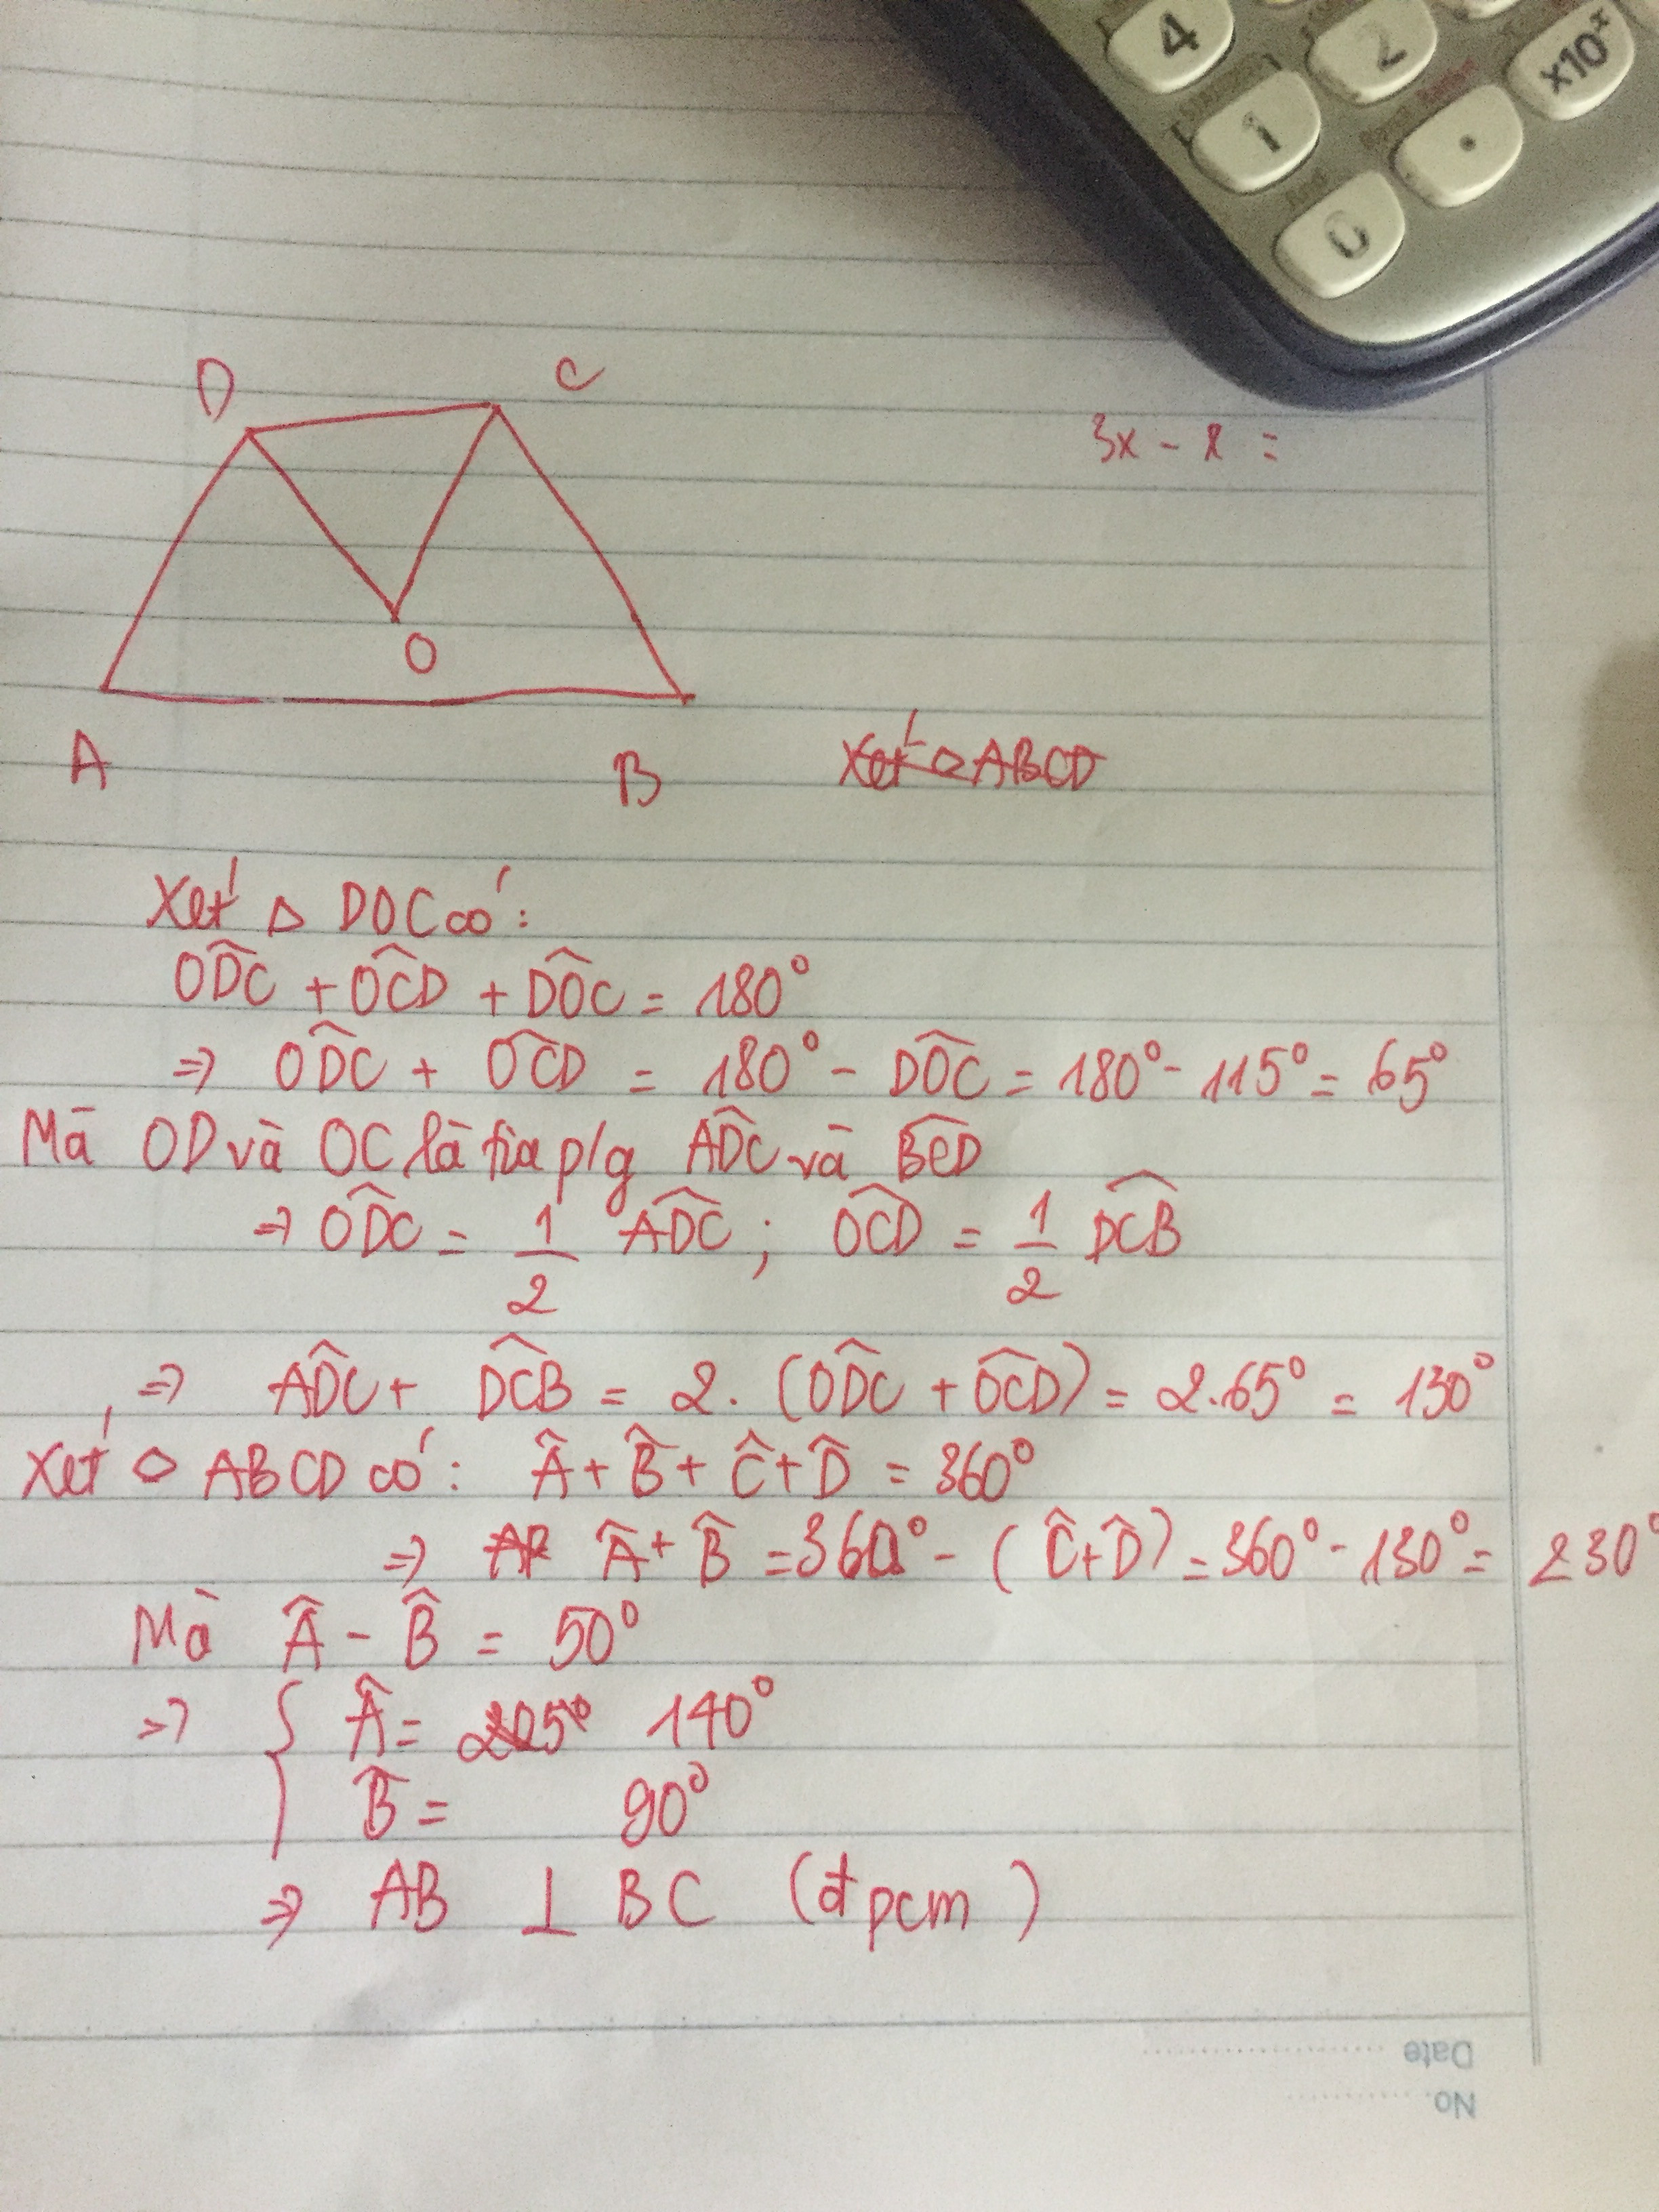 4 2 ×10ˣ
1 •
0
D C
3x - 8 =
O
A B
Xét ◇ ABCD
Xét △ DOC có:
ODC^ + OCD^ + DOC^ = 180°
=> ODC^ + OCD^ = 180° - DOC^ = 180° - 115° = 65°
Mà OD và OC là tia p/g ADC^ và BCD^
=> ODC^ = 1/2 ADC^ ; OCD^ = 1/2 DCB^
=> ADC^ + DCB^ = 2. (ODC^ + OCD^) = 2.65° = 130°
Xét ◇ ABCD có: Â + B^ + Ĉ + D^ = 360°
=> Â + B^ = 360° - (Ĉ + D^) = 360° - 130° = 230°
Mà Â - B^ = 50°
=> { Â = 140°
B^ = 90°
=> AB ⊥ BC (đpcm)
Date
No.